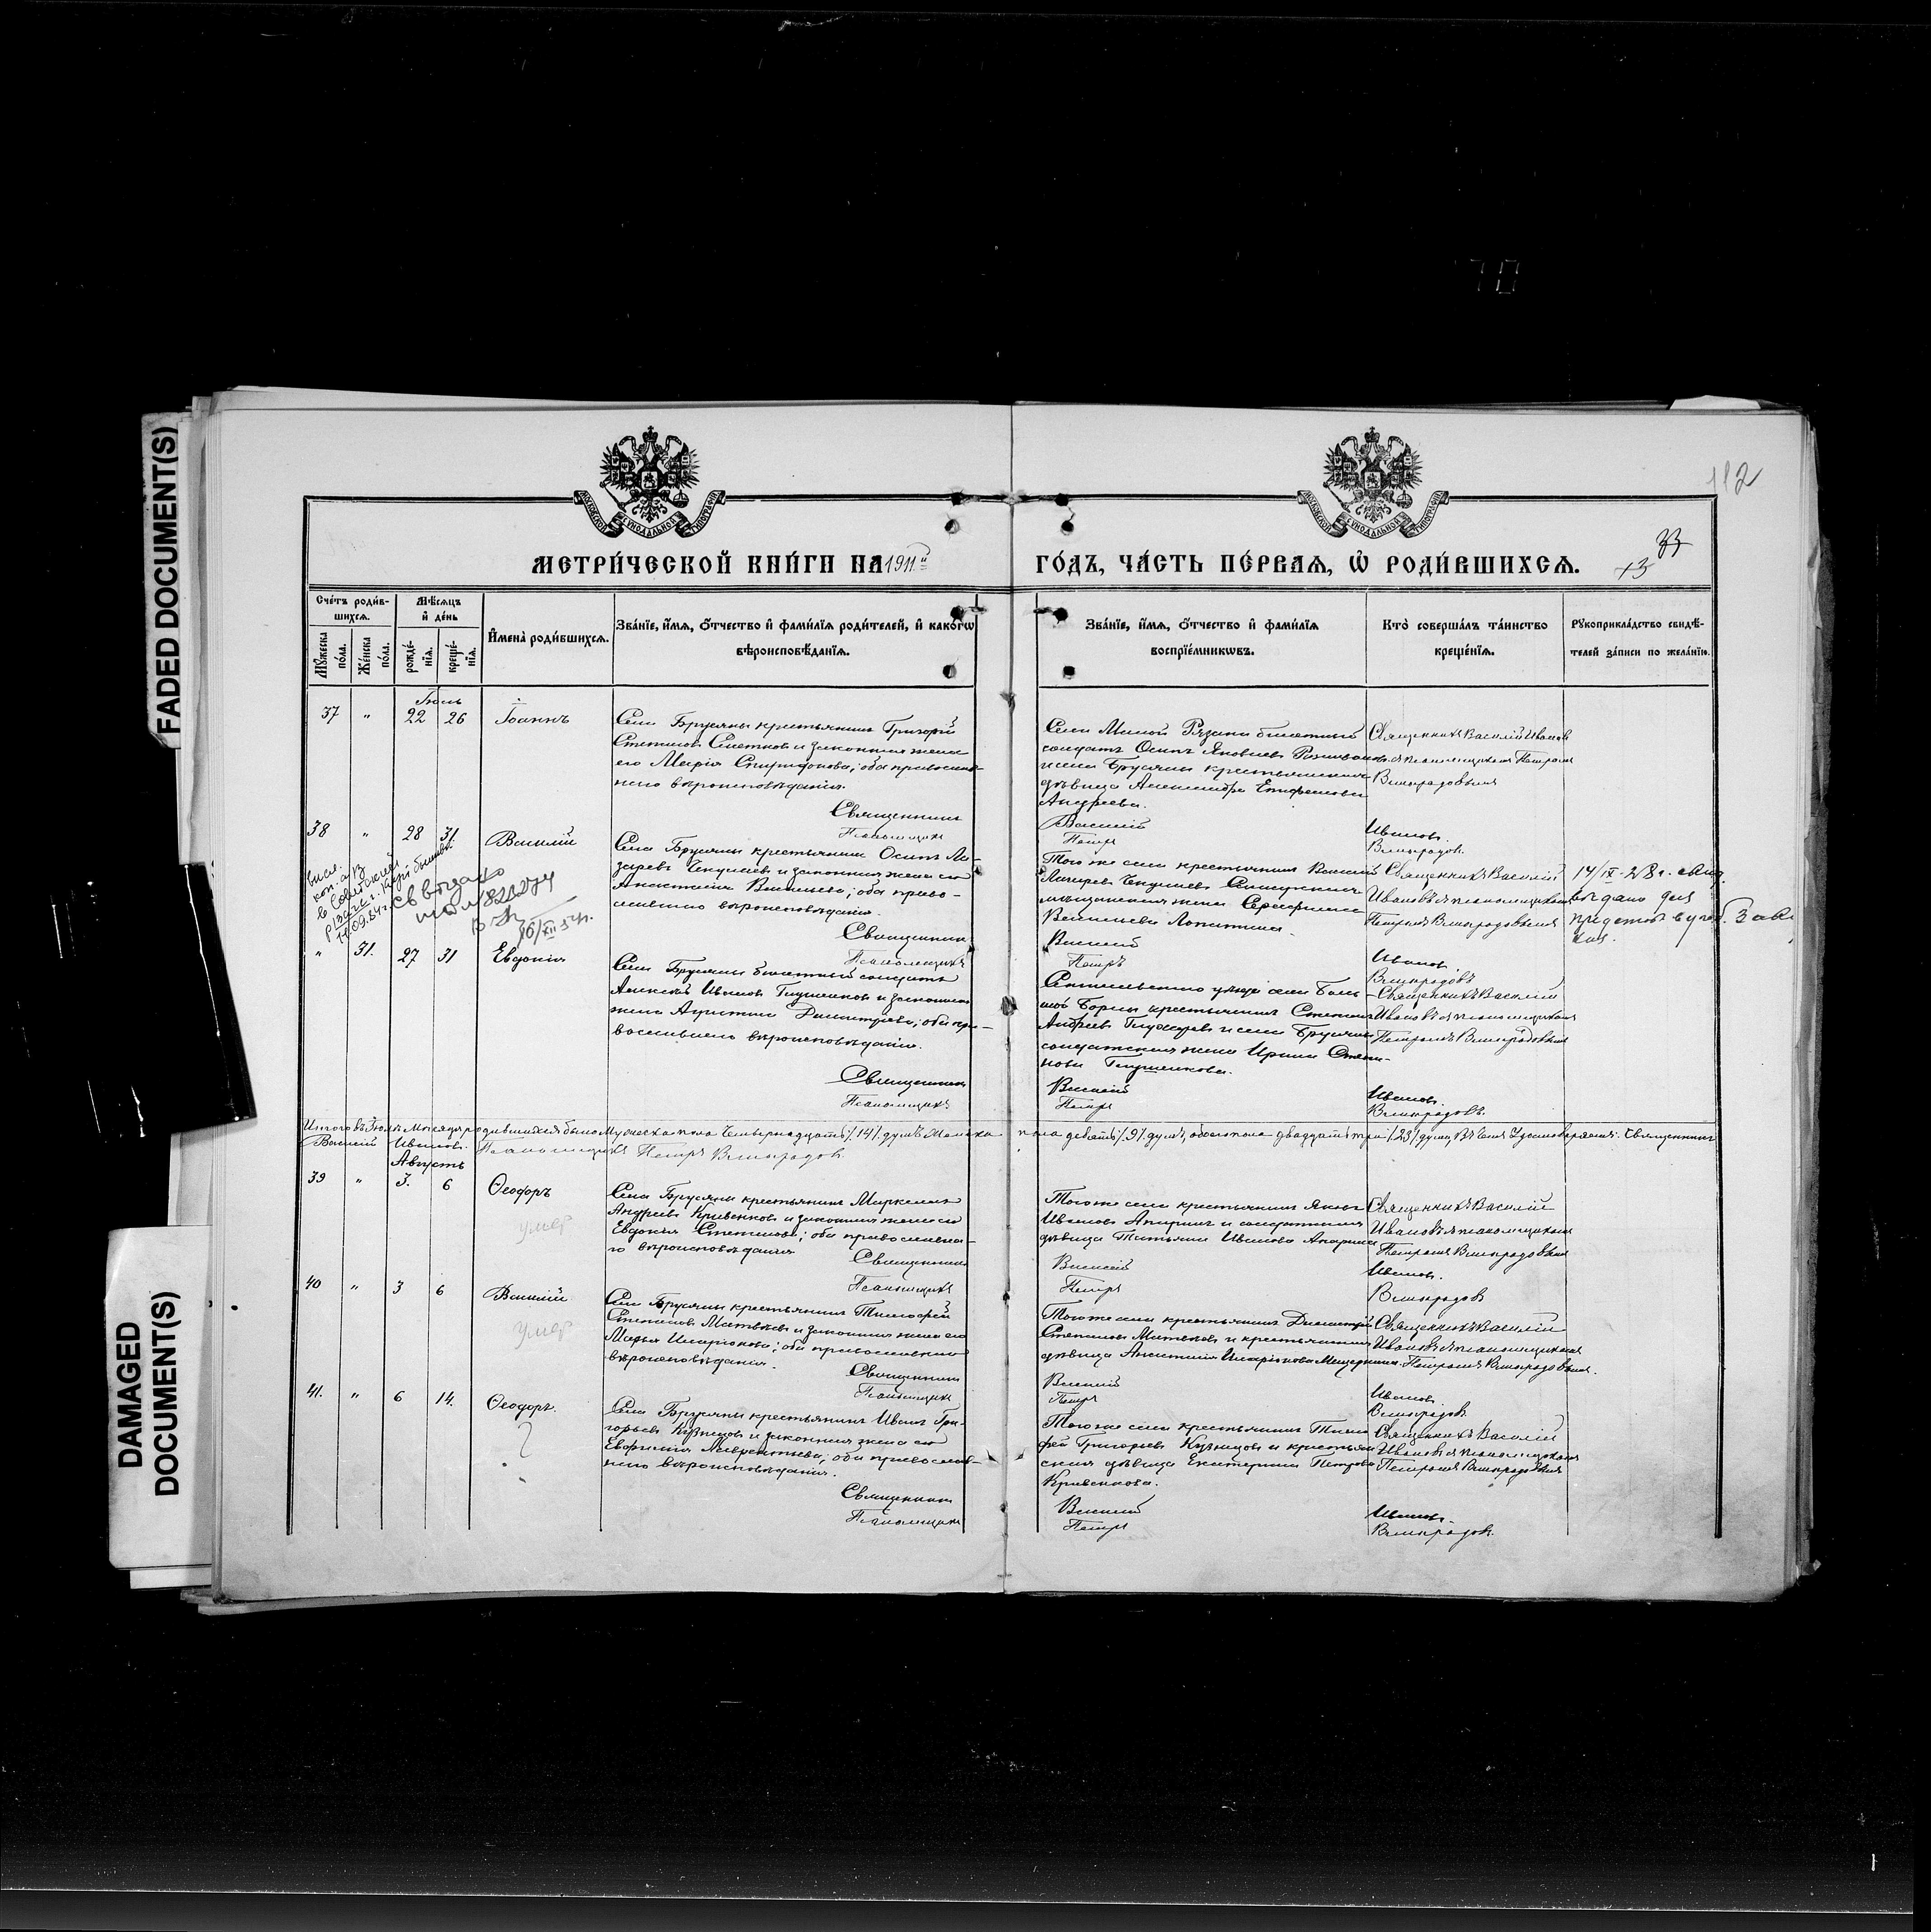 FADED DOCUMENT(S)
DAMAGED
DOCUMENT(S)
112
МОСКОВСКОЙ СѴНОДАЛЬНОЙ ТИПОГРАФІИ
МОСКОВСКОЙ СѴНОДАЛЬНОЙ ТИПОГРАФІИ
МЕТРИ́ЧЕСКОЙ КНИ́ГИ НА 1911й
ГО́ДЪ, ЧА́СТЬ ПЕ́РВАѦ, Ѡ҆ РОДИ́ВШИХСѦ.
33
Сче́тъ роди́в-
шихсѧ.
Мꙋ́жеска
по́ла.
Же́нска
по́ла.
Мѣ́сѧцъ
и҆ де́нь
рожде́-
нїѧ.
креще́-
нїѧ.
И҆мена̀ роди́вшихсѧ.
Зва́нїе, и҆́мѧ, ѻ҆́тчество и҆ фами́лїѧ роди́телей, и҆ како́гѡ
вѣроисповѣ́данїѧ.
Зва́нїе, и҆́мѧ, ѻ҆́тчество и҆ фами́лїѧ
воспрїе́мникѡвъ.
Кто̀ соверша́лъ та́инство
креще́нїѧ.
Рꙋкоприкла́дство свидѣ́-
телей за́писи по жела́нїю.
Іюль
37 " 22 26 Іоаннъ
Села Брусяны крестьянинъ Григорій
Степановъ Сметковъ и законная жена
его Марія Спиридонова; оба православ-
наго вѣроисповѣданія.
Священникъ
Псаломщикъ
Села Малой Рязани билетный
солдатъ Осипъ Яковлевъ
и села Брусяны крестьянская
дѣвица Александра Епифанова
Андреева.
Василій
Петръ
Священникъ Василій Ивановъ
съ псаломщикомъ Петромъ
Виноградовымъ
Ивановъ.
Виноградовъ.
38 " 28 31 Василій
Села Брусяны крестьянинъ Осипъ Ла-
заревъ Чекулаевъ и законная жена его
Анастасія Васильева; оба право-
славнаго вѣроисповѣданія.
Священникъ
Псаломщикъ
Того же села крестьянинъ Василій
Лазаревъ Чекулаевъ
мѣщанская жена Серафима
Васильева Лопатина.
Василій
Петръ
Священникъ Василій
Ивановъ съ псаломщикомъ
Петромъ Виноградовымъ
Ивановъ.
Виноградовъ
14/IX-28 г. свид.
выдано для
" 31. 27 31 Евдокія
Села Брусяны билетный солдатъ
Алексѣй Ивановъ Глушенковъ и законная
жена Агриппина Димитріева; оба пра-
вославнаго вѣроисповѣданія.
Священникъ
Псаломщикъ
Сенгилеевскаго уѣзда села Боль-
шой Борлы крестьянинъ Степанъ
Андреевъ и села Брусяны
солдатская жена Ирина Степа-
нова Глушенкова.
Василій
Петръ
Священникъ Василій
Ивановъ съ псаломщикомъ
Петромъ Виноградовымъ
Ивановъ.
Виноградовъ.
Итого въ Іюлѣ мѣсяцѣ родившихся было мужеска пола четырнадцать /14/ душъ женска пола девять /9/ душъ, обоего пола двадцать три /23/ души, въ чемъ удостовѣряемъ: Священникъ
Василій Ивановъ. Псаломщикъ Петръ Виноградовъ.
Августъ
39 " 3. 6 Ѳеодоръ
умер
Села Брусяны крестьянинъ Маркелъ
Андреевъ Кривенковъ и законная жена его
Евдокія Степанова; оба православна-
го вѣроисповѣданія
Священникъ
Псаломщикъ
Того же села крестьянинъ Яковъ
Ивановъ Апаринъ и солдатская
дѣвица Татьяна Иванова Апарина
Василій
Петръ
Священникъ Василій
Ивановъ съ псаломщикомъ
Петромъ Виноградовымъ
Ивановъ.
Виноградовъ
40 " 3 6 Василій
умер
Села Брусяны крестьянинъ Тимофей
Степановъ Матвѣевъ и законная жена его
Марья Иларіонова; оба православнаго
вѣроисповѣданія.
Священникъ
Псаломщикъ
Того же села крестьянинъ Димитрій
Степановъ Матвѣевъ и крестьянская
дѣвица Анастасія Иларіонова Мещерякова.
Василій
Петръ
Священникъ Василій
Ивановъ съ псаломщикомъ
Петромъ Виноградовымъ.
Ивановъ.
Виноградовъ.
41. " 6 14. Ѳеодоръ.
?
Села Брусяны крестьянинъ Иванъ Гри-
горьевъ Кузнецовъ и законная жена его
Евфимія Лаврентьева; оба православ-
наго вѣроисповѣданія.
Священникъ
Псаломщикъ
Того же села крестьянинъ Тимо-
фей Григорьевъ Кузнецовъ и крестьян-
ская дѣвица Екатерина Петрова
Кривенкова.
Василій
Петръ
Священникъ Василій
Ивановъ съ псаломщикомъ
Петромъ Виноградовымъ
Ивановъ.
Виноградовъ.